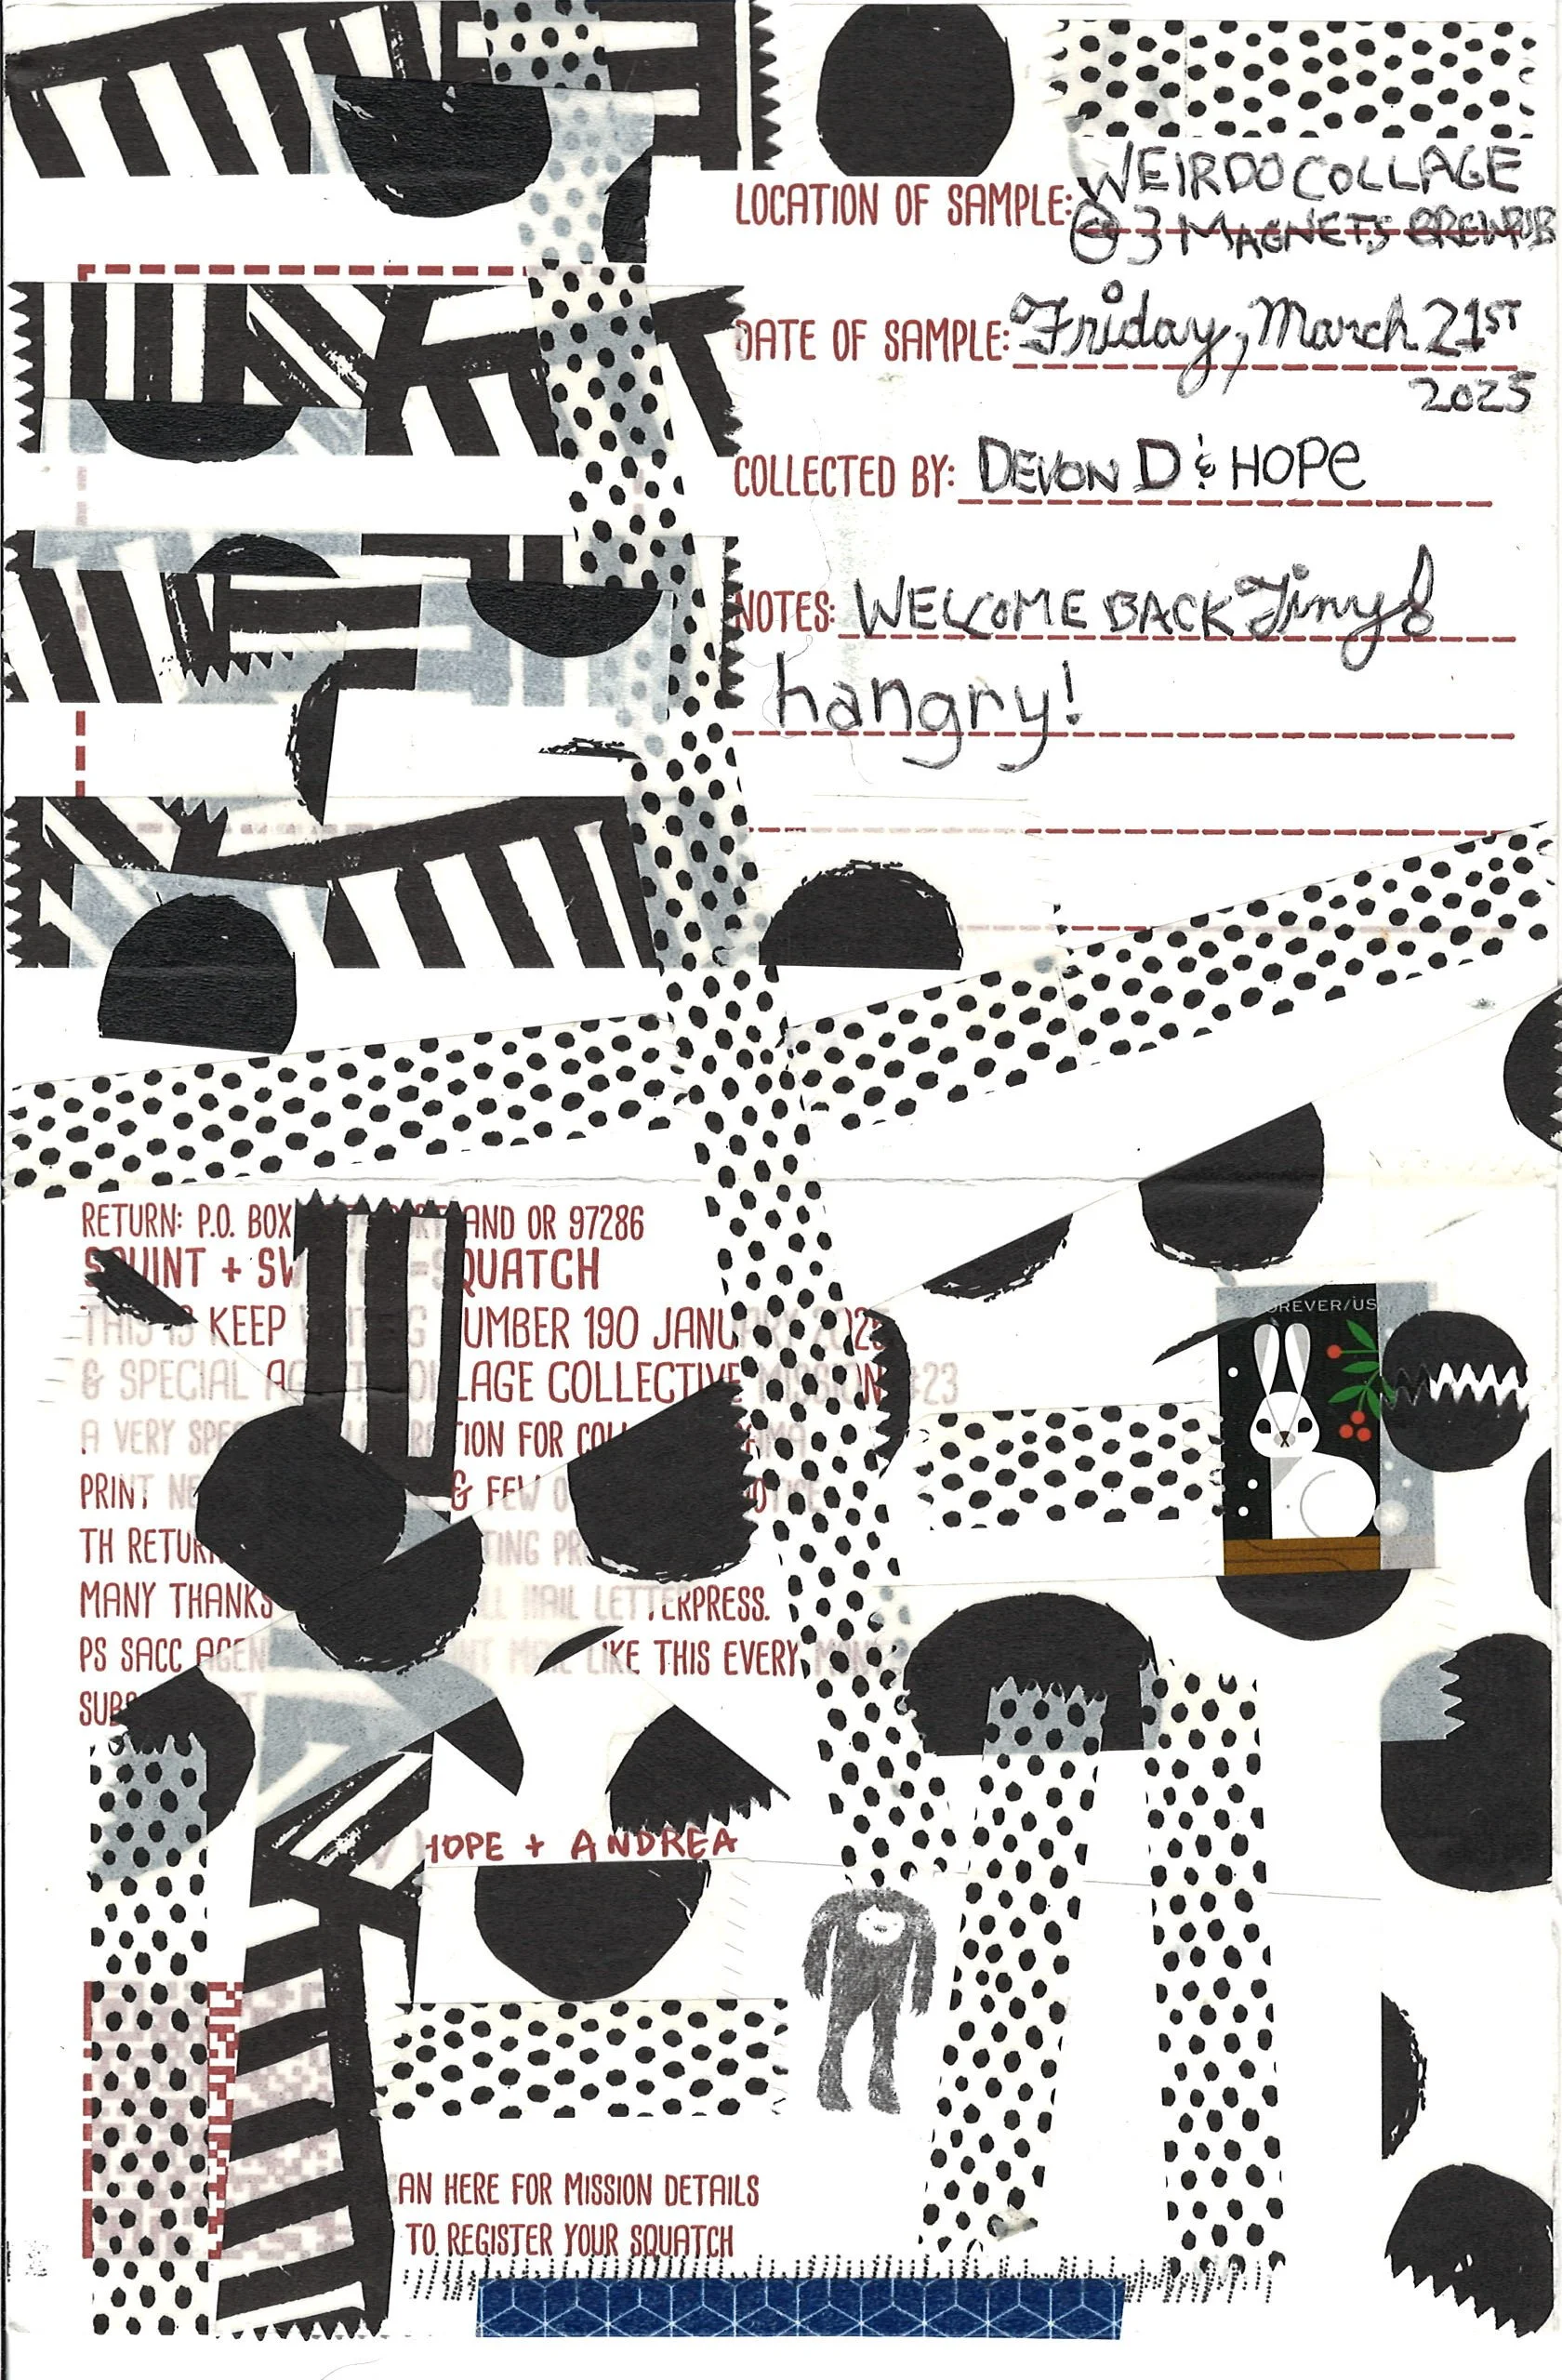 LOCATION OF SAMPLE: WEIRDO COLLAGE
@ 3 MAGNETS BREWPUB
DATE OF SAMPLE: Friday, March 21ST
2025
COLLECTED BY: DEVON D & HOPE
NOTES: WELCOME BACK Tiny &
hangry!
RETURN: P.O. BOX AND OR 97286
SQUINT + SW =SQUATCH
THIS IS KEEP UMBER 190 JANUARY 2025
& SPECIAL AGENT COLLAGE COLLECTIVE MISSION #23
A VERY SPE TION FOR COL
PRINT NE & FEW O
TH RETUR TING PR
MANY THANKS LL MAIL LETTERPRESS.
PS SACC AGEN NT MAIL LIKE THIS EVERY MONT
SUBS
HOPE + ANDREA
FOREVER/US
AN HERE FOR MISSION DETAILS
TO REGISTER YOUR SQUATCH